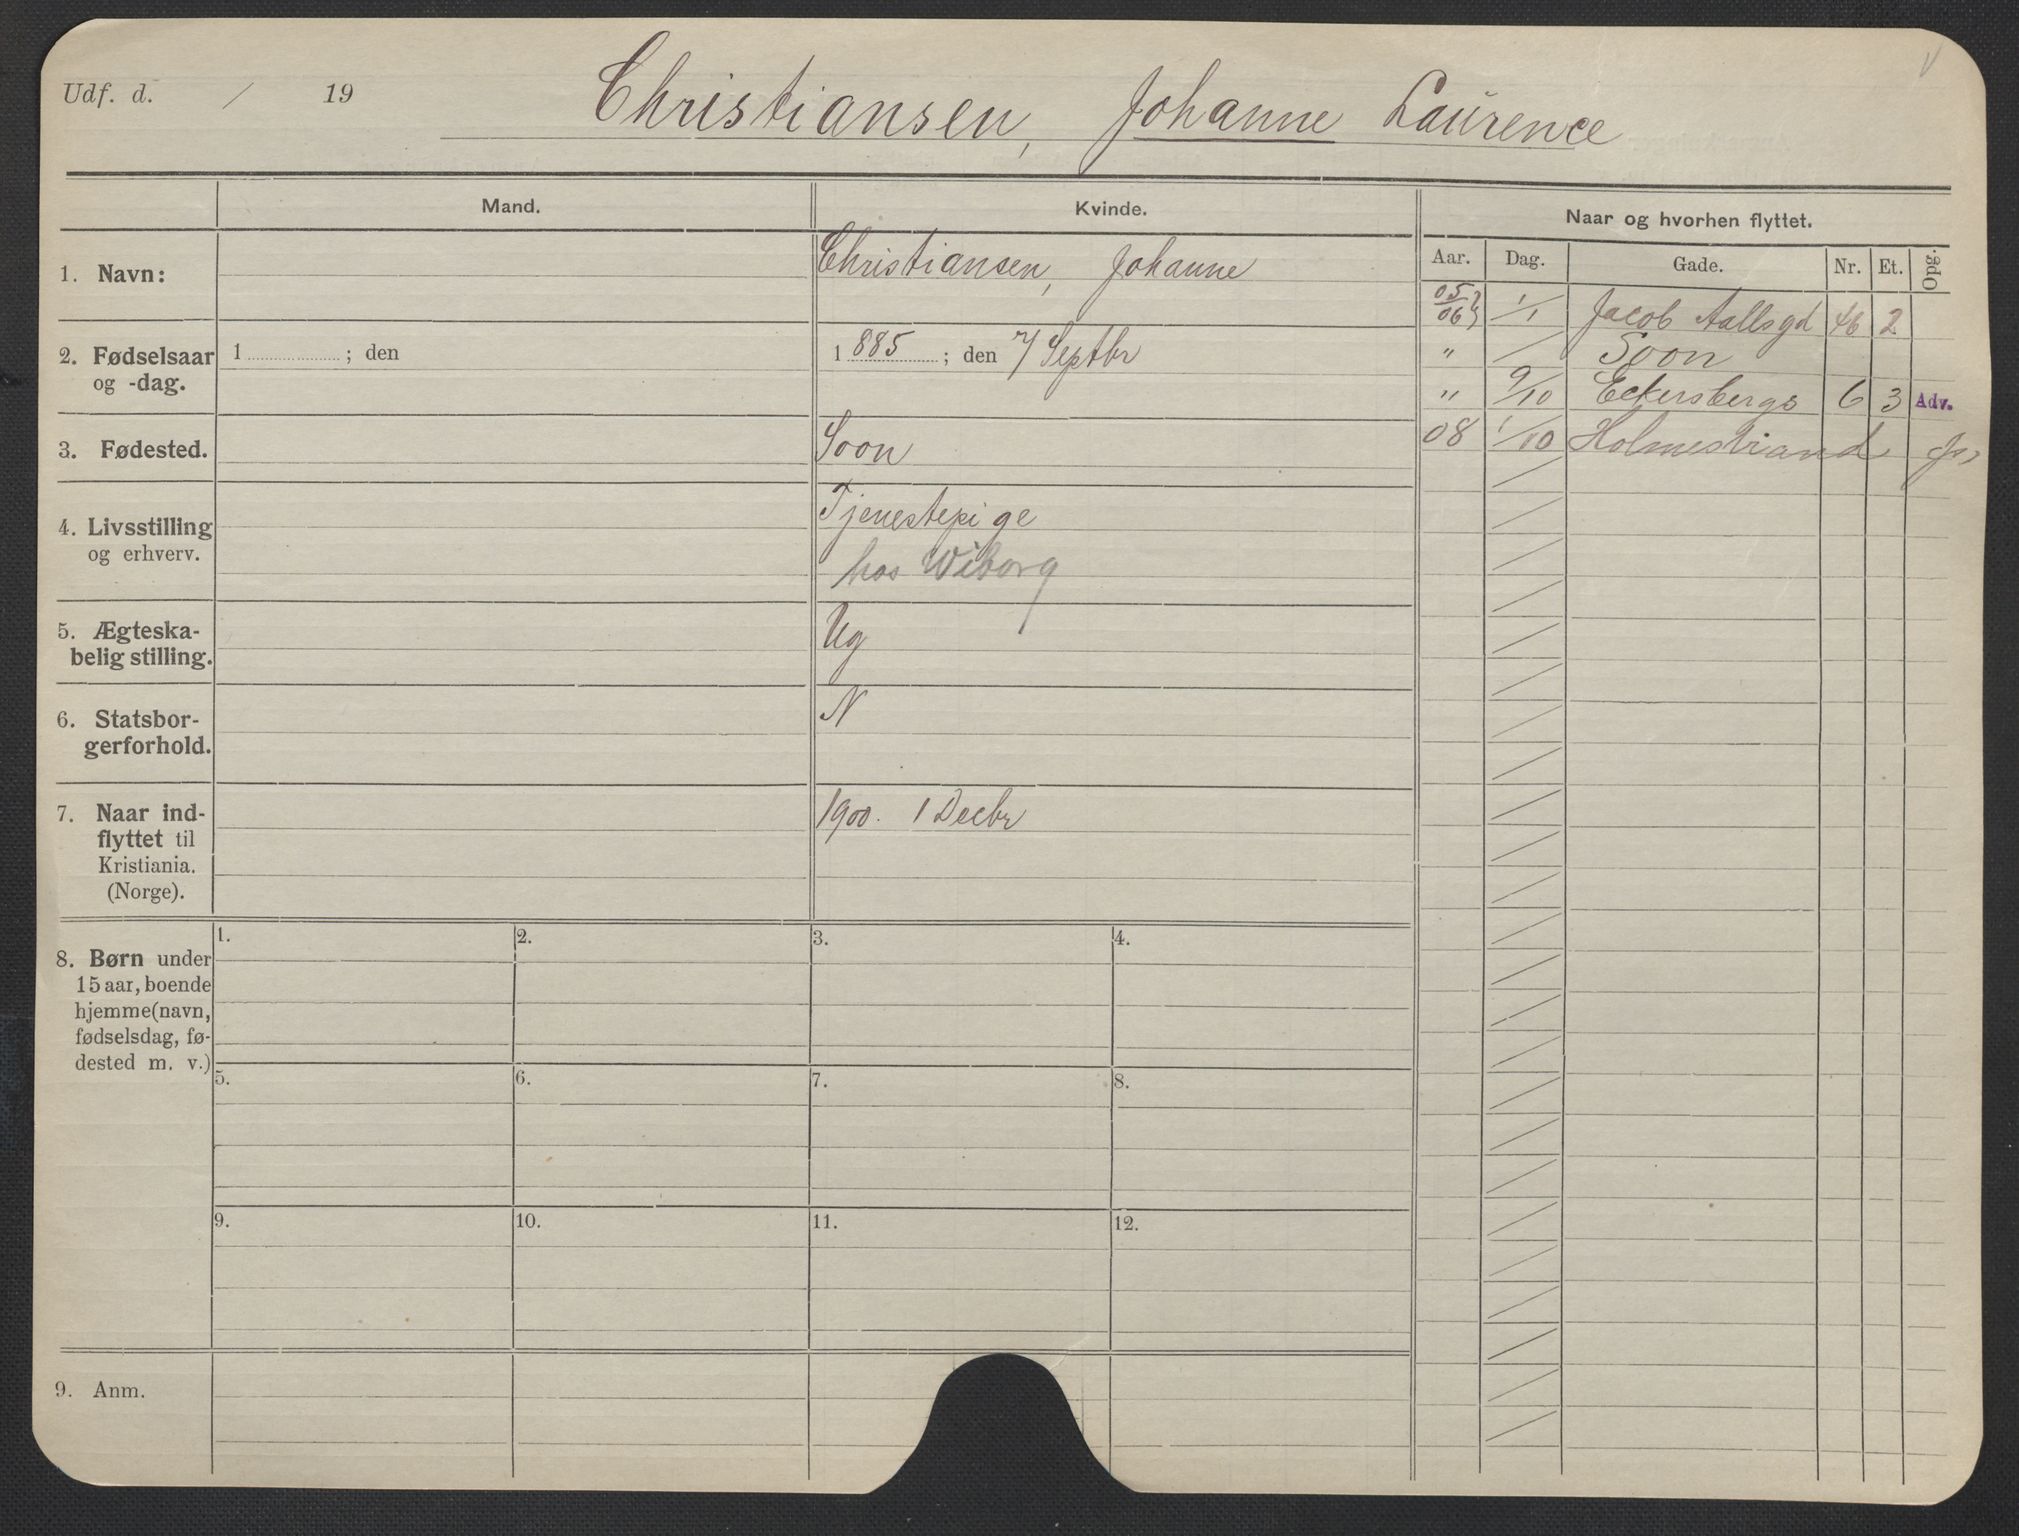 Udf. d. / 19 Christiansen, Johanne Laurence
Mand. Kvinde. Naar og hvorhen flyttet.
Aar. Dag. Gade. Nr. Et. Opg.
1. Navn: Christiansen, Johanne
05/06 1/1 Jacob Aallsgd 46 2
2. Fødselsaar og -dag. 1 ; den 1885 ; den 7/ Septbr
" / Soon
" 9/10 Eckersbergs 6 3 Adv.
08 1/10 Holmestrand
3. Fødested. Soon
4. Livsstilling og erhverv. Tjenestepige
hos Wiborg
5. Ægteska-
belig stilling. Ug
6. Statsbor-
gerforhold. N
7. Naar ind-
flyttet til
Kristiania.
(Norge). 1900. 1 Decbr
8. Børn under
15 aar, boende
hjemme (navn,
fødselsdag, fø-
dested m. v.)
1. 2. 3. 4.
5. 6. 7. 8.
9. 10. 11. 12.
9. Anm.